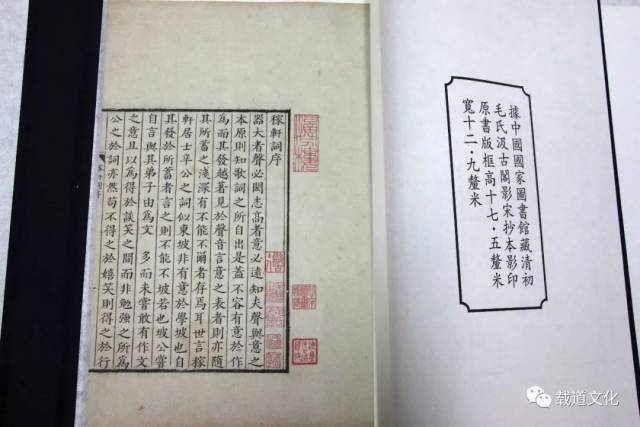 據中國國家圖書館藏清初
毛氏汲古閣影宋抄本影印
原書版框高十七·五釐米
寬十二·九釐米
稼軒詞序
器大者聲必閎志高者意必遠知夫聲與意之
本原則知歌詞之所自出是蓋不容有意於作
為而其發越著見於聲音言意之表者則亦隨
其所蓄之淺深有不能不爾者存焉耳世言稼
軒居士辛公之詞似東坡非有意於學坡也自
其發於所蓄者言之則不能不坡若也坡公嘗
自言與其弟子由為文 多而未嘗敢有作文
之意且以為得於談笑之間而非勉強之所為
公之於詞亦然苟不得之於嬉笑則得之於行
载道文化